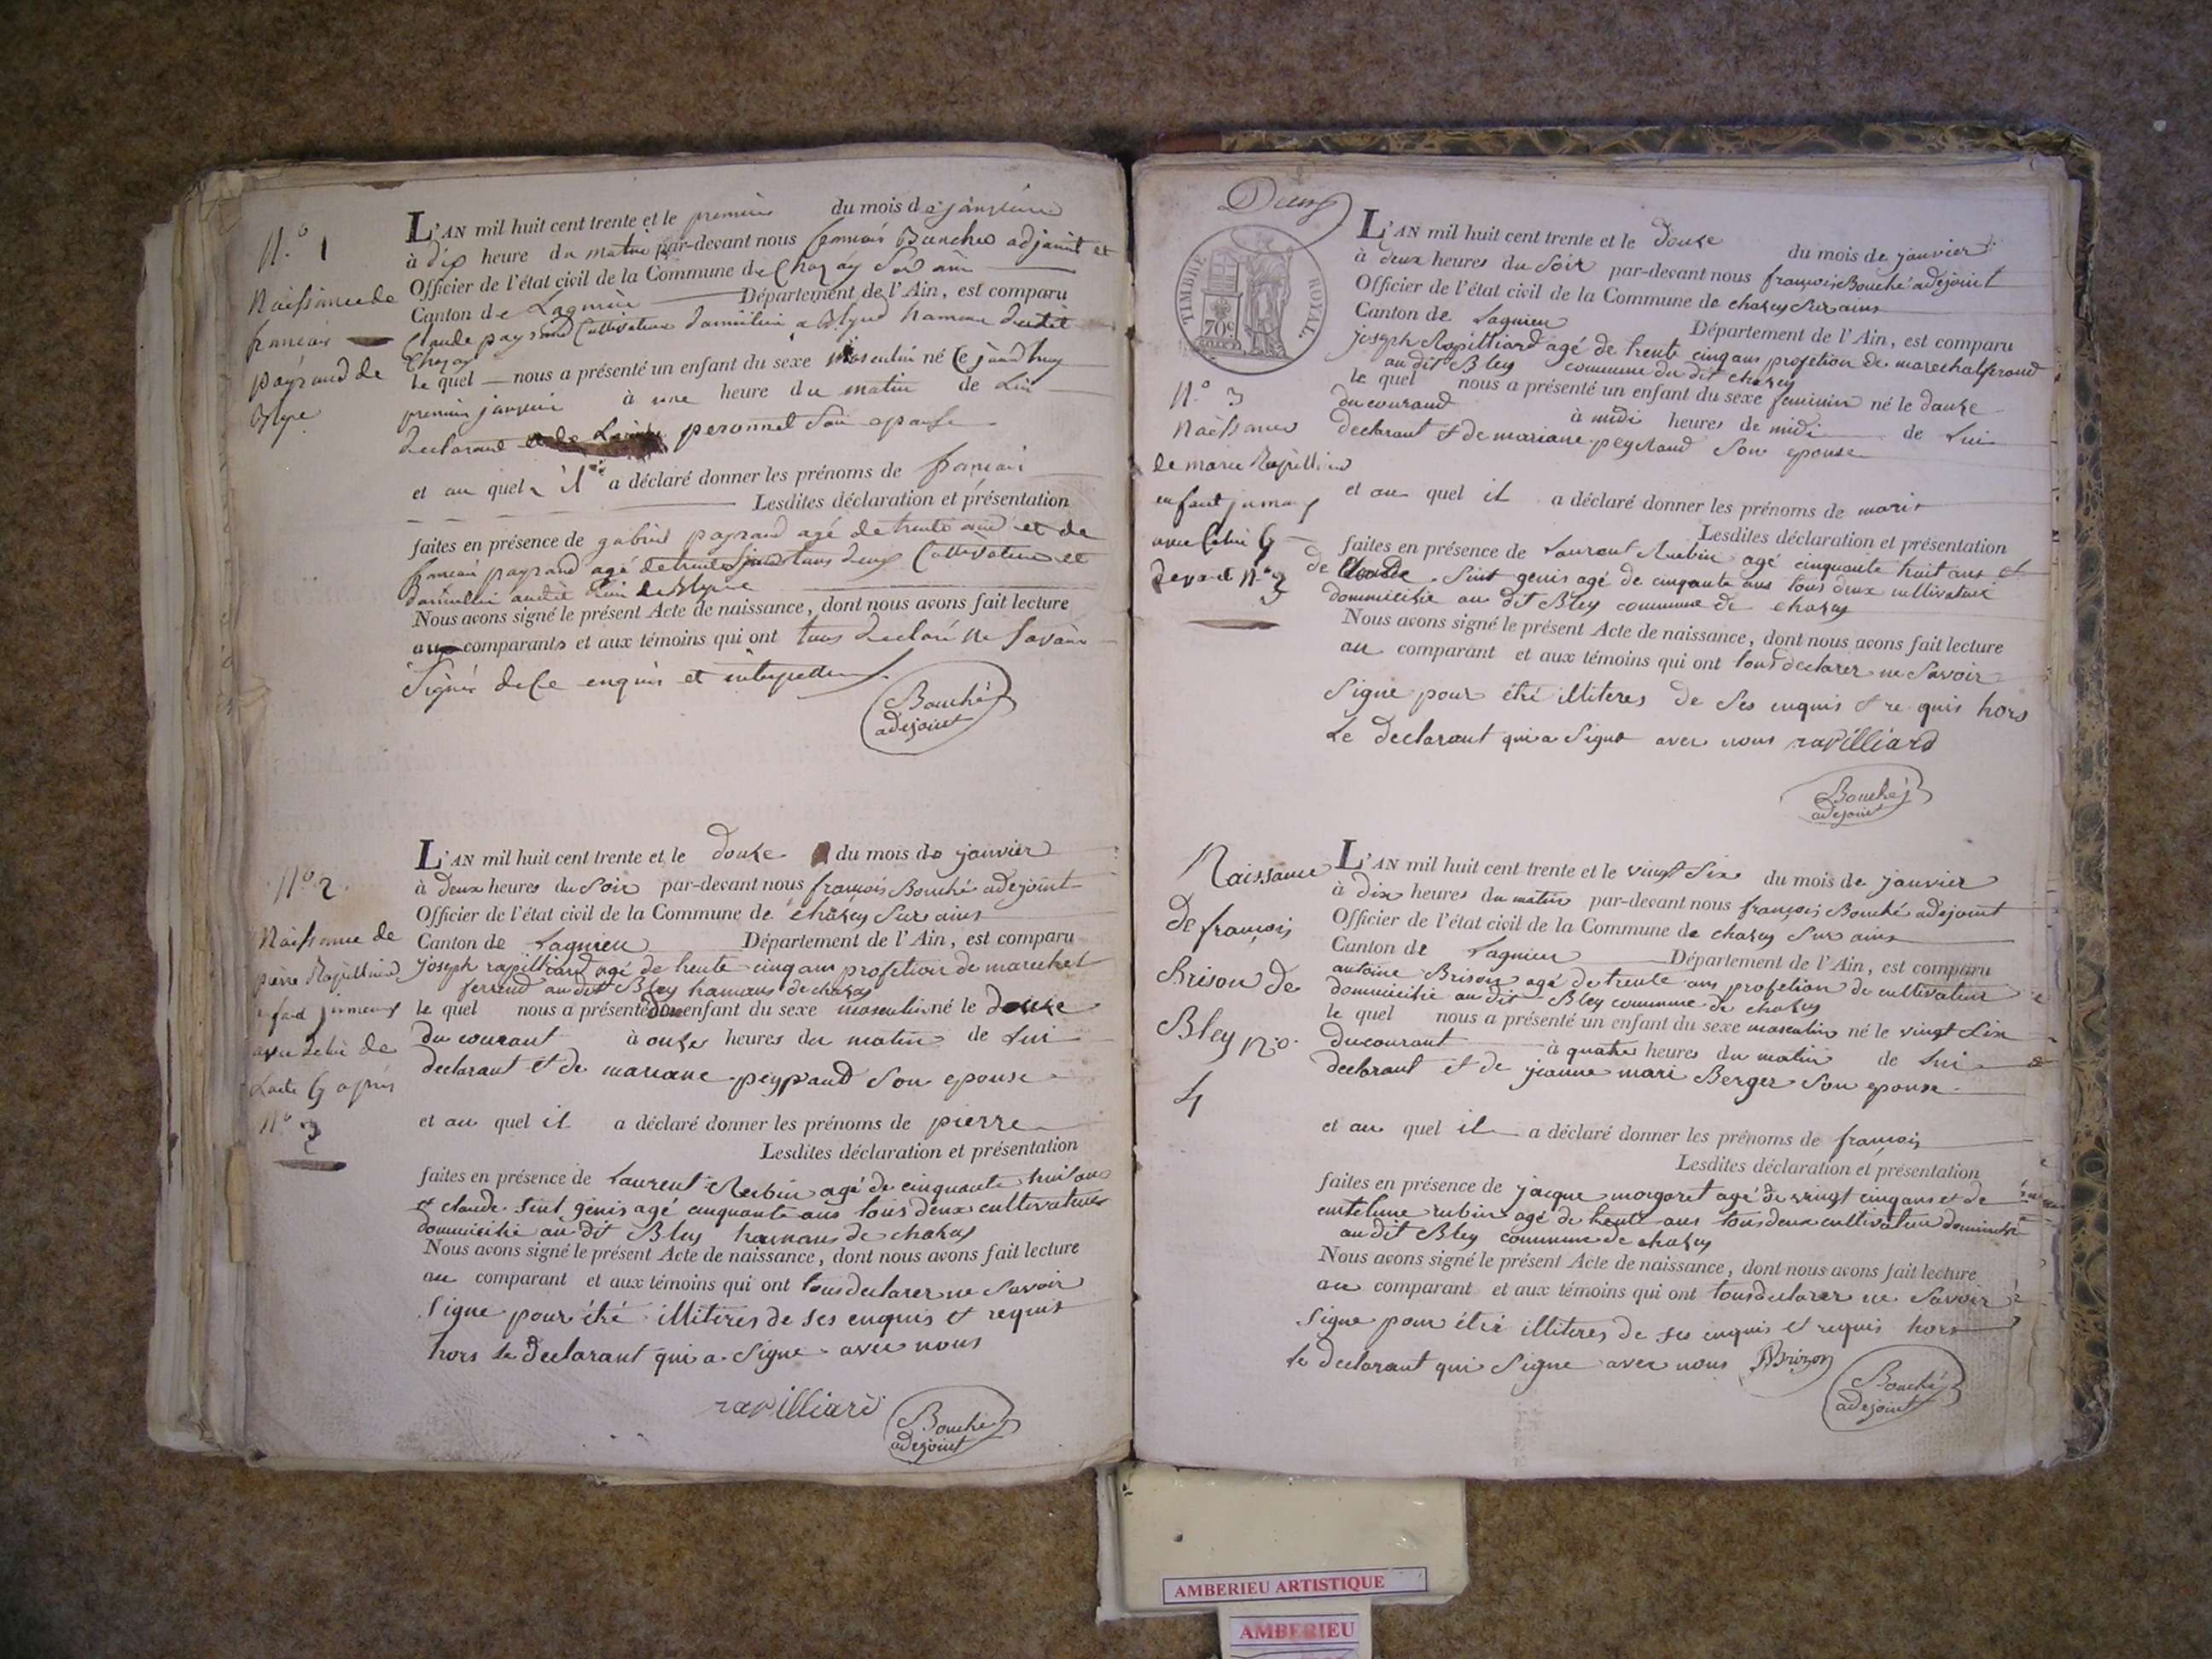 N.° 1
Naissance de
francois
payraud de
Blye
L'AN mil huit cent trente et le premier du mois de janvier
à dix heure du matin par-devant nous francois Bouché adjoint et
Officier de l'état civil de la Commune de Chazay Sur ain
Canton de Lagnieu Département de l'Ain, est comparu
Claude payraud Cultivateur domicilié a Blye hameau dudit
Chazay
le quel nous a présenté un enfant du sexe masculin né Ce jourd'huy
premier janvier à une heure du matin de Lui
declarant peronnet Son epouse
et au quel il a déclaré donner les prénoms de francois
Lesdites déclaration et présentation
faites en présence de gabriel payraud agé de trente et de
francois payraud agé de trente tous deux Cultivateur et
domicilié audit lieu de Blye
Nous avons signé le présent Acte de naissance, dont nous avons fait lecture
aux comparants et aux témoins qui ont tous declaré ne Savoir
Signer de Ce enquis et interpellé
Bouché
adejoint
N.° 2
Naissance de
pierre Rapilliard
enfant jumeaux
avec Celui de
Lacte Cy apres
N.° 3
L'AN mil huit cent trente et le douze du mois de janvier
à Deux heures du Soir par-devant nous françois Bouché adejoint
Officier de l'état civil de la Commune de chazey Sur ains
Canton de Lagnieu Département de l'Ain, est comparu
joseph rapilliard agé de trente cinq ans profetion de marechal
ferrend au dit Bley hamaus de chazay
le quel nous a présenté un enfant du sexe masculin né le douze
du courant à onze heures du matin de Lui
declarant et de mariane peyraud Son epouse
et au quel il a déclaré donner les prénoms de pierre
Lesdites déclaration et présentation
faites en présence de Laurent Rubin agé de cinquante huit ans
et claude Sint genis agé cinquante ans tous deux cultivateur
dommicilié au dit Bley hamaus de chazay
Nous avons signé le présent Acte de naissance, dont nous avons fait lecture
au comparant et aux témoins qui ont tous declarer ne Savoir
Signe pour étré illiteres de ses enquis et requis
hors le declarant qui a Signe avec nous
rapilliard
Bouché
adejoint
Deux
TIMBRE ROYAL
70c
N.° 3
Naissance
de marie Rapilliard
enfant jumeaux
avec Celui Cy
devant N.° 2
L'AN mil huit cent trente et le douze du mois de janvier
à deux heures du Soir par-devant nous françois Bouché adejoint
Officier de l'état civil de la Commune de chazey Sur ains
Canton de Lagnieu Département de l'Ain, est comparu
joseph Rapilliard agé de trente cinq ans profetion de marechalferand
au dit Bley commune du dit chazey
le quel nous a présenté un enfant du sexe feminin né le douze
du courand à midi heures de midi de Lui
declarant et de mariane peyraud Son epouse
et au quel il a déclaré donner les prénoms de marie
Lesdites déclaration et présentation
faites en présence de Laurent Rubin agé cinquante huit ans et
de Sint genis agé de cinquante ans tous deux cultivateur
dommicilié au dit Bley commune de chazey
Nous avons signé le présent Acte de naissance, dont nous avons fait lecture
au comparant et aux témoins qui ont tous declarer ne Savoir
Signe pour étré illiteres de Ses enquis et re quis hors
Le declarant qui a Signe avec nous rapilliard
Bouché
adejoint
Naissance
de françois
Brison de
Bley N.°
4
L'AN mil huit cent trente et le vingt Six du mois de janvier
à Dix heures du matin par-devant nous françois Bouché adejoint
Officier de l'état civil de la Commune de chazey Sur ains
Canton de Lagnieu Département de l'Ain, est comparu
antoine Brison agé de trente ans profetion de cultivateur
dommicilié au dit Bley commune de chazey
le quel nous a présenté un enfant du sexe masculin né le vingt Six
du courant à quatre heures du matin de Lui
declarant et de jeanne mari Berger Son epouse
et au quel il a déclaré donner les prénoms de françois
Lesdites déclaration et présentation
faites en présence de jacque morgaret agé de vingt cinq ans et de
entelme rubin agé de trente ans tous deux cultivateur dommicilié
au dit Bley commune de chazey
Nous avons signé le présent Acte de naissance, dont nous avons fait lecture
au comparant et aux témoins qui ont tous declarer ne Savoir
Signe pour étré illiteres de ses enquis et requis hors
le declarant qui Signe avec nous Brizon
Bouché
adejoint
AMBERIEU ARTISTIQUE
AMBERIEU